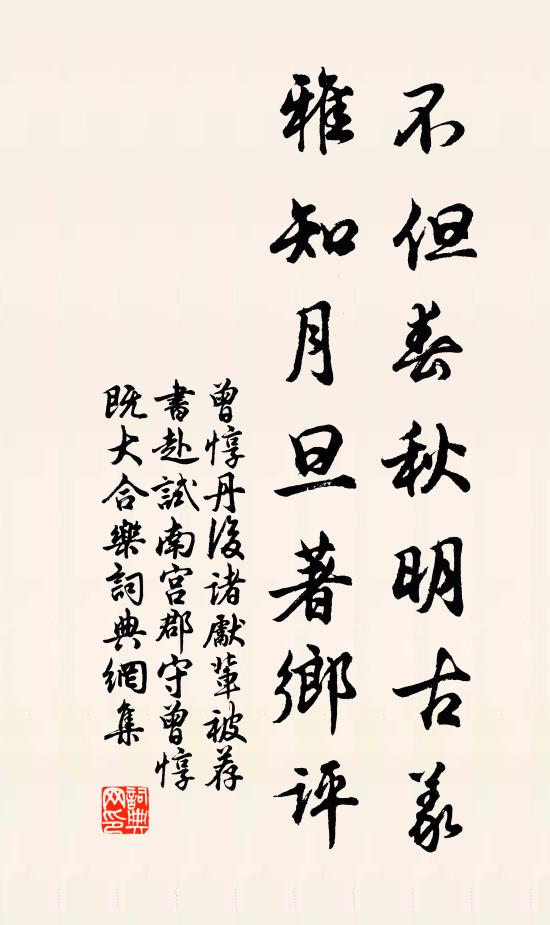 不但春秋明古義
雅知月旦著鄉評
曾惇丹後诸獻輩被荐
書赴試南宫郡守曾惇
既大合樂詞典網集
詞典
网印